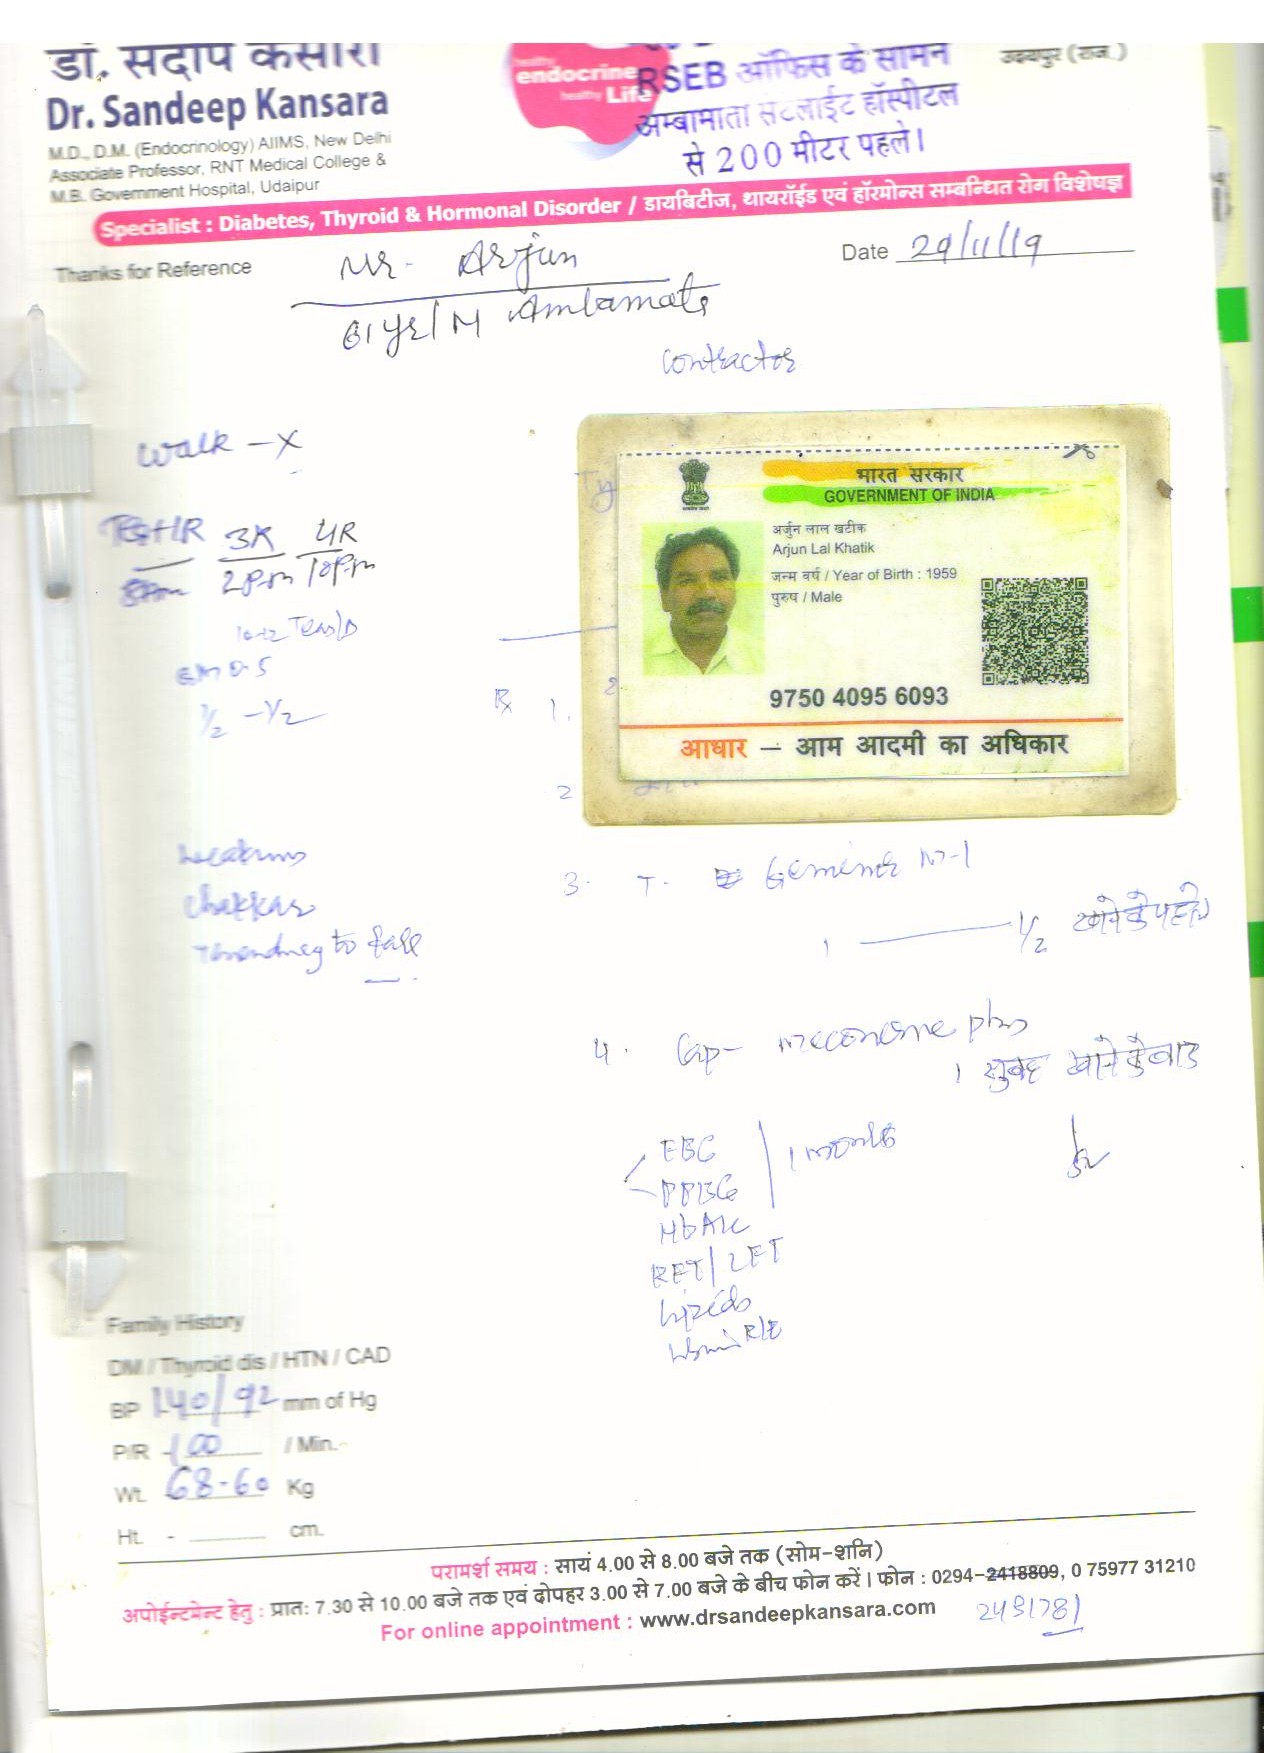 डॉ. सदीप कंसारा
Dr. Sandeep Kansara
M.D., D.M. (Endocrinology) AIIMS, New Delhi
Associate Professor, RNT Medical College &
M.B. Government Hospital, Udaipur
healthy
endocrine
healthy Life
RSEB ऑफिस के सामने
अम्बामाता सेटेलाईट हॉस्पीटल
से 200 मीटर पहले।
उदयपुर (राज.)
Specialist : Diabetes, Thyroid & Hormonal Disorder / डायबिटीज, थायरॉईड एवं हॉरमोन्स सम्बन्धित रोग विशेषज्ञ
Thanks for Reference
Mr. Arjun
Date 29/11/19
61yr/M Ambamata
Contractor
Walk - X
3R 4R
2pm 10pm
10-12 Teas/D
GM 0.5
1/2 - 1/2
भारत सरकार
GOVERNMENT OF INDIA
अर्जुन लाल खटीक
Arjun Lal Khatik
जन्म वर्ष / Year of Birth : 1959
पुरुष / Male
9750 4095 6093
आधार – आम आदमी का अधिकार
Rx 1.
2
Weakness
Chakkar
Tendency to fall
3. T. M-1
1 — 1/2 खाने के पहले
4. Cap- plus
1 सुबह खाने के बाद
FBG
PPBG
1 month
HbA1c
RFT/LFT
Lipids
R/E
Family History
DM / Thyroid dis / HTN / CAD
BP 140/92 mm of Hg
P/R - 100 / Min.
Wt. 68.60 Kg
Ht. - cm.
परामर्श समय : सायं 4.00 से 8.00 बजे तक (सोम-शनि)
अपोईन्टमेन्ट हेतु : प्रातः 7.30 से 10.00 बजे तक एवं दोपहर 3.00 से 7.00 बजे के बीच फोन करें। फोन : 0294-2418809, 0 75977 31210
For online appointment : www.drsandeepkansara.com
2431781